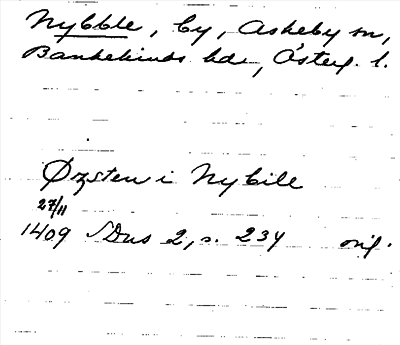 Nybble, by, Askeby sn,
Bankekinds hd, Österg. l.
Øzsten i Nybile
27/11
1409 SDns 2, s. 234 orig.